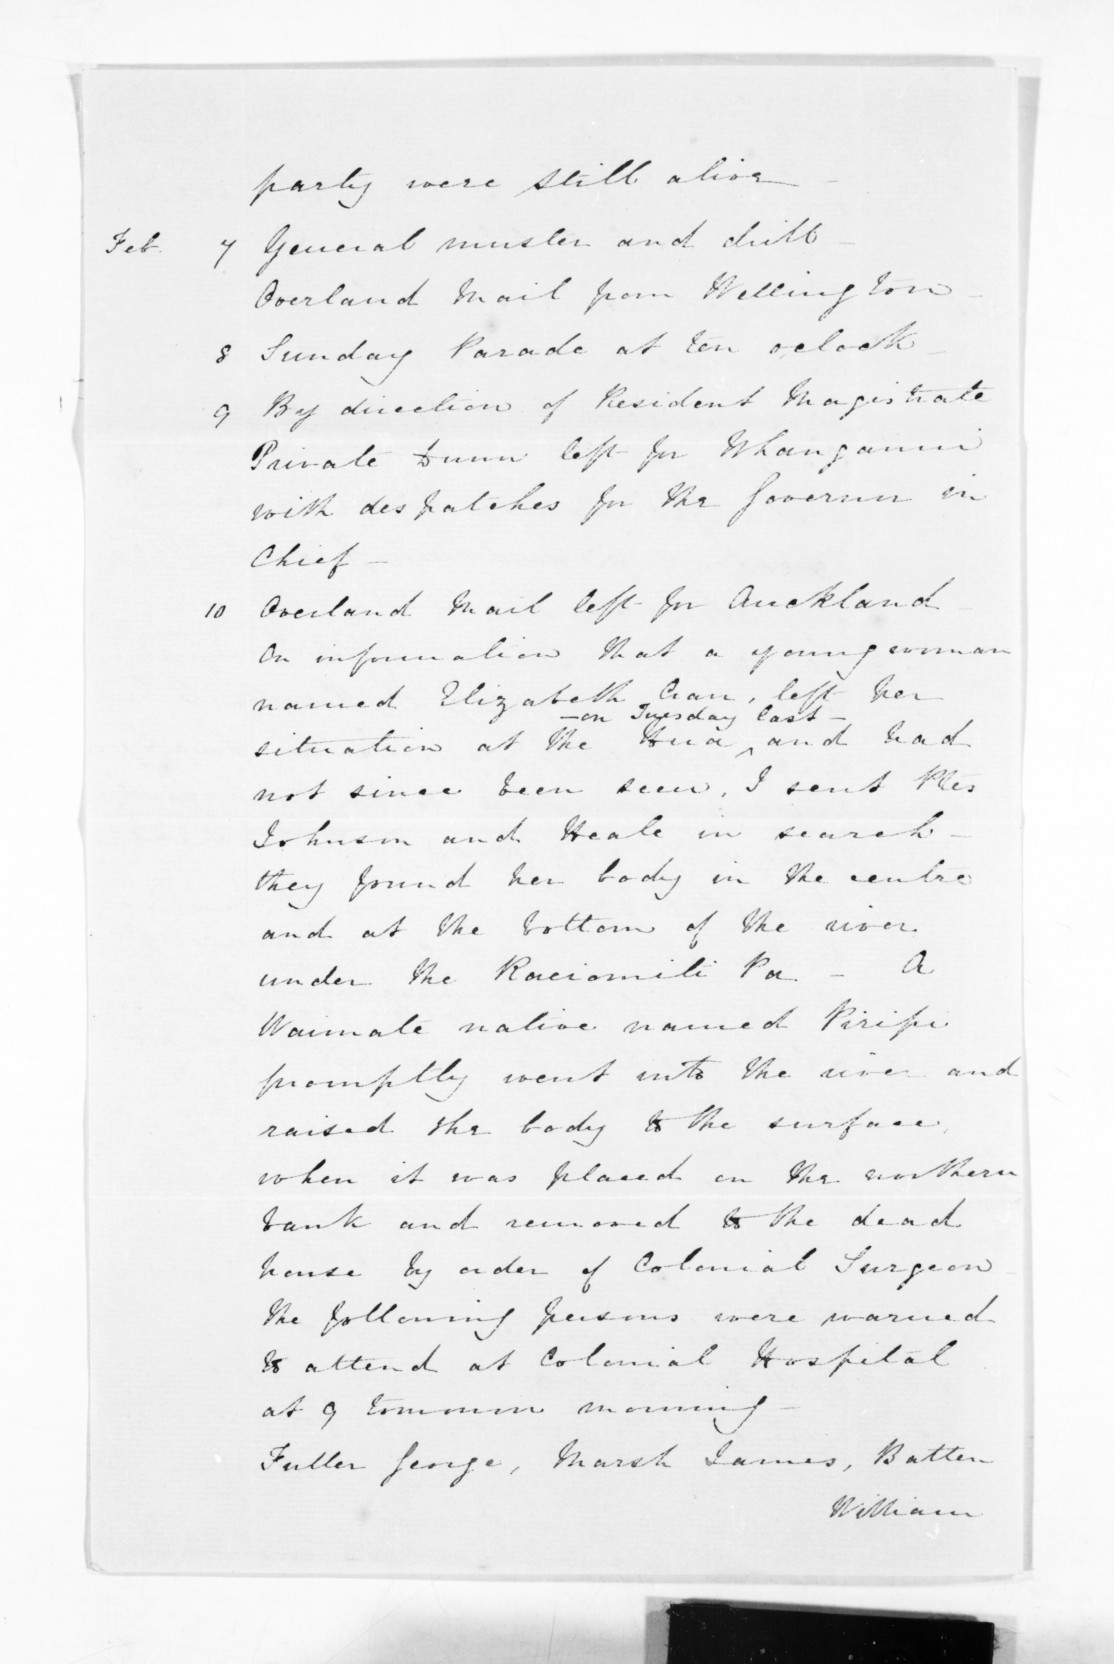 party were still alive -
Feb. 7 General muster and drill -
Overland Mail from Wellington -
8 Sunday Parade at ten o,clock -
9 By direction of Resident Magistrate
Private Dunn left for Whanganui
with despatches for the Governor in
Chief -
10 Overland Mail left for Auckland -
On information that a young woman
named Elizabeth , left her
- on Tuesday last -
situation at the Hua ^ and had
not since been seen, I sent Ptes
Johnson and Heale in search -
they found her body in the centre
and at the bottom of the river
under the Pa - A
Waimate native named Piripi
promptly went into the river and
raised the body to the surface,
when it was placed on the northern
bank and removed to the dead
house by order of Colonial Surgeon -
the following persons were warned
to attend at Colonial Hospital
at 9 tomorrow morning -
Fuller George, Marsh James, Batten
William